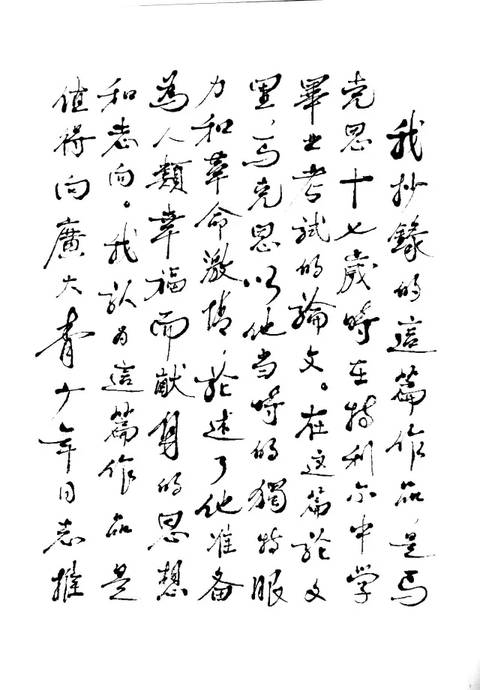 我抄錄的這篇作品,是马
克思十七歲時在特利尔中学
畢业考試的論文。在这篇論文
里,马克思以他当時的獨特眼
力和革命激情,論述了他准备
為人類幸福而献身的思想
和志向。我认为這篇作品是
值得向廣大青少年同志推